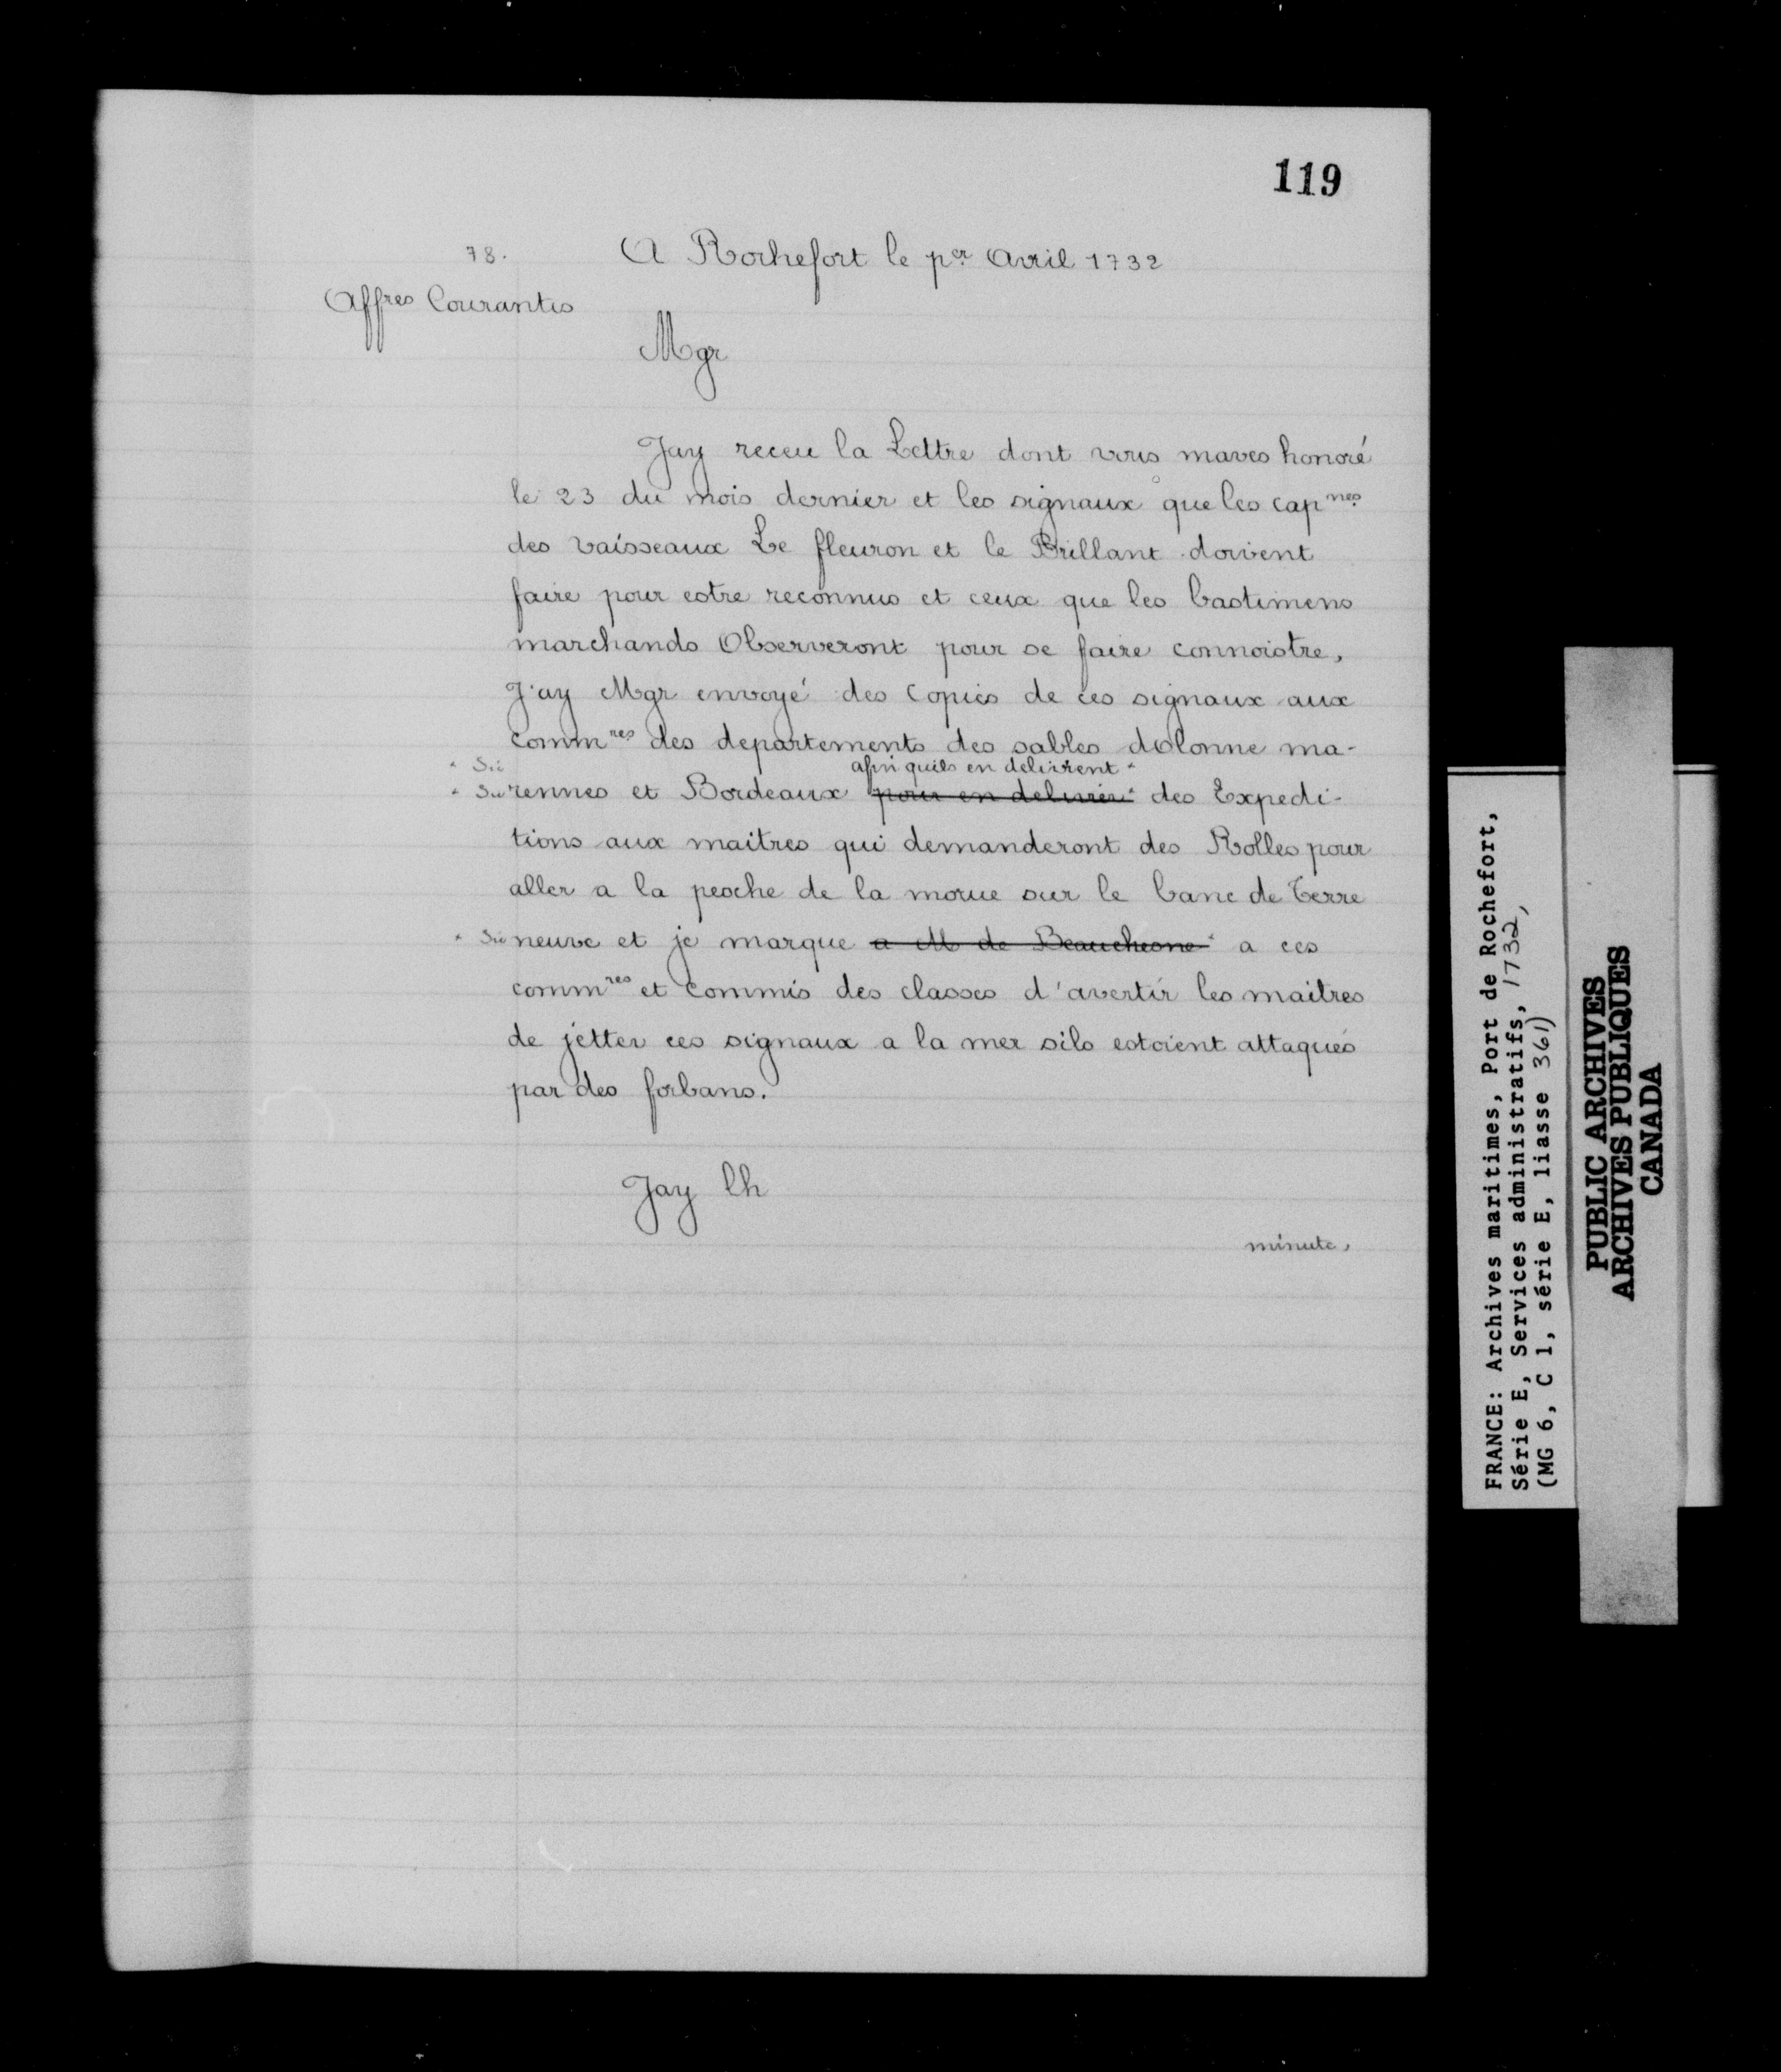 119
78. A Rochefort le p.er Avril 1732
Aff.res Courantes
Mgr
Jay receu la Lettre dont vous maves honoré
le 23 du mois dernier et les signaux que les cap.nes
des vaisseaux Le fleuron et le Brillant doivent
faire pour estre reconnus et ceux que les bastimens
marchands Observeront pour se faire connoistre,
J'ay Mgr envoyé des Copies de ces signaux aux
comm.res des departements des sables dolonne ma-
* Sic afin quils en delivrent *
* Sic rennes et Bordeaux pour en delivrer * des Expedi-
tions aux maitres qui demanderont des Rolles pour
aller a la pesche de la morue sur le banc de Terre
* Sic neuve et je marque a M de Beauchesne * a ces
comm.res et Commis des classes d'avertir les maitres
de jetter ces signaux a la mer sils estoient attaqués
par des forbans.
Jay lh
minute,
FRANCE: Archives maritimes, Port de Rochefort,
Série E, Services administratifs, 1732,
(MG 6, C 1, série E, liasse 361)
PUBLIC ARCHIVES
ARCHIVES PUBLIQUES
CANADA